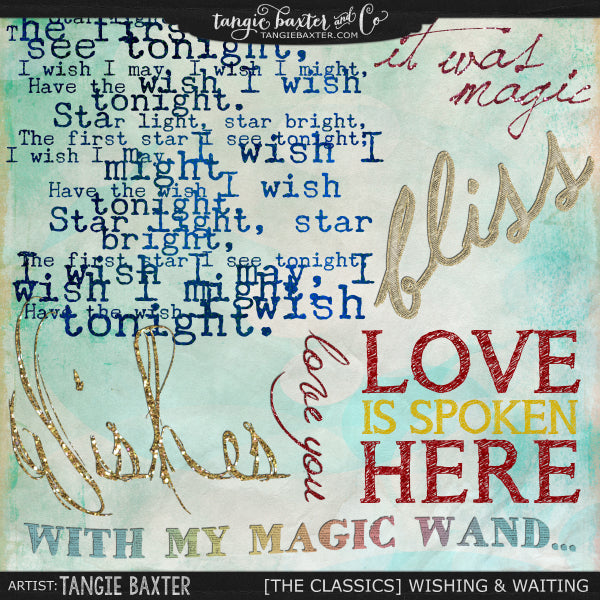 tangie baxter and Co
TANGIEBAXTER.COM
The first
see tonight,
I wish I may, I wish I might,
Have the wish I wish
tonight.
Star light, star bright,
The first star I see tonight;
I wish I may, I wish I
might,
Have the wish I wish
tonight.
Star light, star
bright,
The first star I see tonight,
I wish I may, I
wish I might,
Have the wish I wish
tonight.
it was
magic
bliss
Wishes
love you
LOVE
IS SPOKEN
HERE
WITH MY MAGIC WAND...
ARTIST: TANGIE BAXTER
[THE CLASSICS] WISHING & WAITING